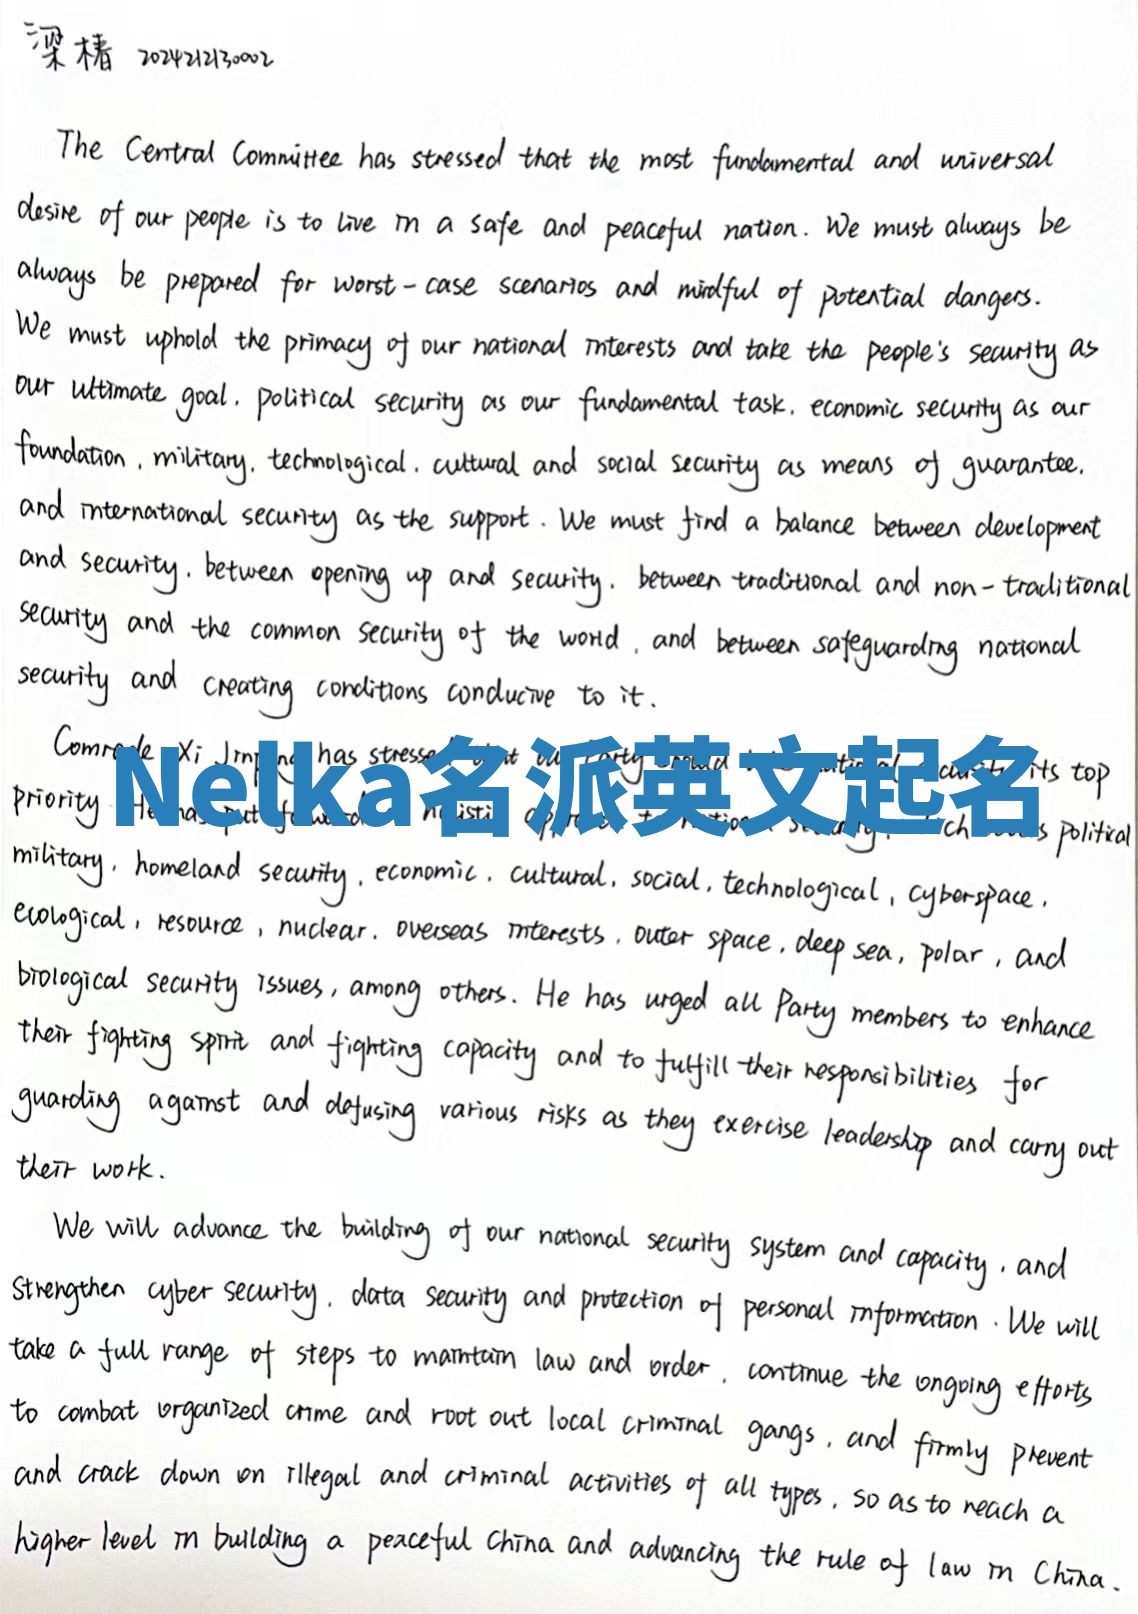 梁椿 2024212130002
The Central Committee has stressed that the most fundamental and universal
desire of our people is to live in a safe and peaceful nation. We must always be
always be prepared for worst-case scenarios and mindful of potential dangers.
We must uphold the primacy of our national interests and take the people's security as
our ultimate goal, political security as our fundamental task, economic security as our
foundation, military, technological, cultural and social security as means of guarantee,
and international security as the support. We must find a balance between development
and security, between opening up and security, between traditional and non-traditional
security and the common security of the world, and between safeguarding national
security and creating conditions conducive to it.
Comrade Xi Jinping has stressed that our Party its top
Nelka名派英文起名
priority He has put forward political
military, homeland security, economic, cultural, social, technological, cyberspace,
ecological, resource, nuclear, overseas interests, outer space, deep sea, polar, and
biological security issues, among others. He has urged all Party members to enhance
their fighting spirit and fighting capacity and to fulfill their responsibilities for
guarding against and defusing various risks as they exercise leadership and carry out
their work.
We will advance the building of our national security system and capacity, and
strengthen cyber security, data security and protection of personal information. We will
take a full range of steps to maintain law and order, continue the ongoing efforts
to combat organized crime and root out local criminal gangs, and firmly prevent
and crack down on illegal and criminal activities of all types, so as to reach a
higher level in building a peaceful China and advancing the rule of law in China.